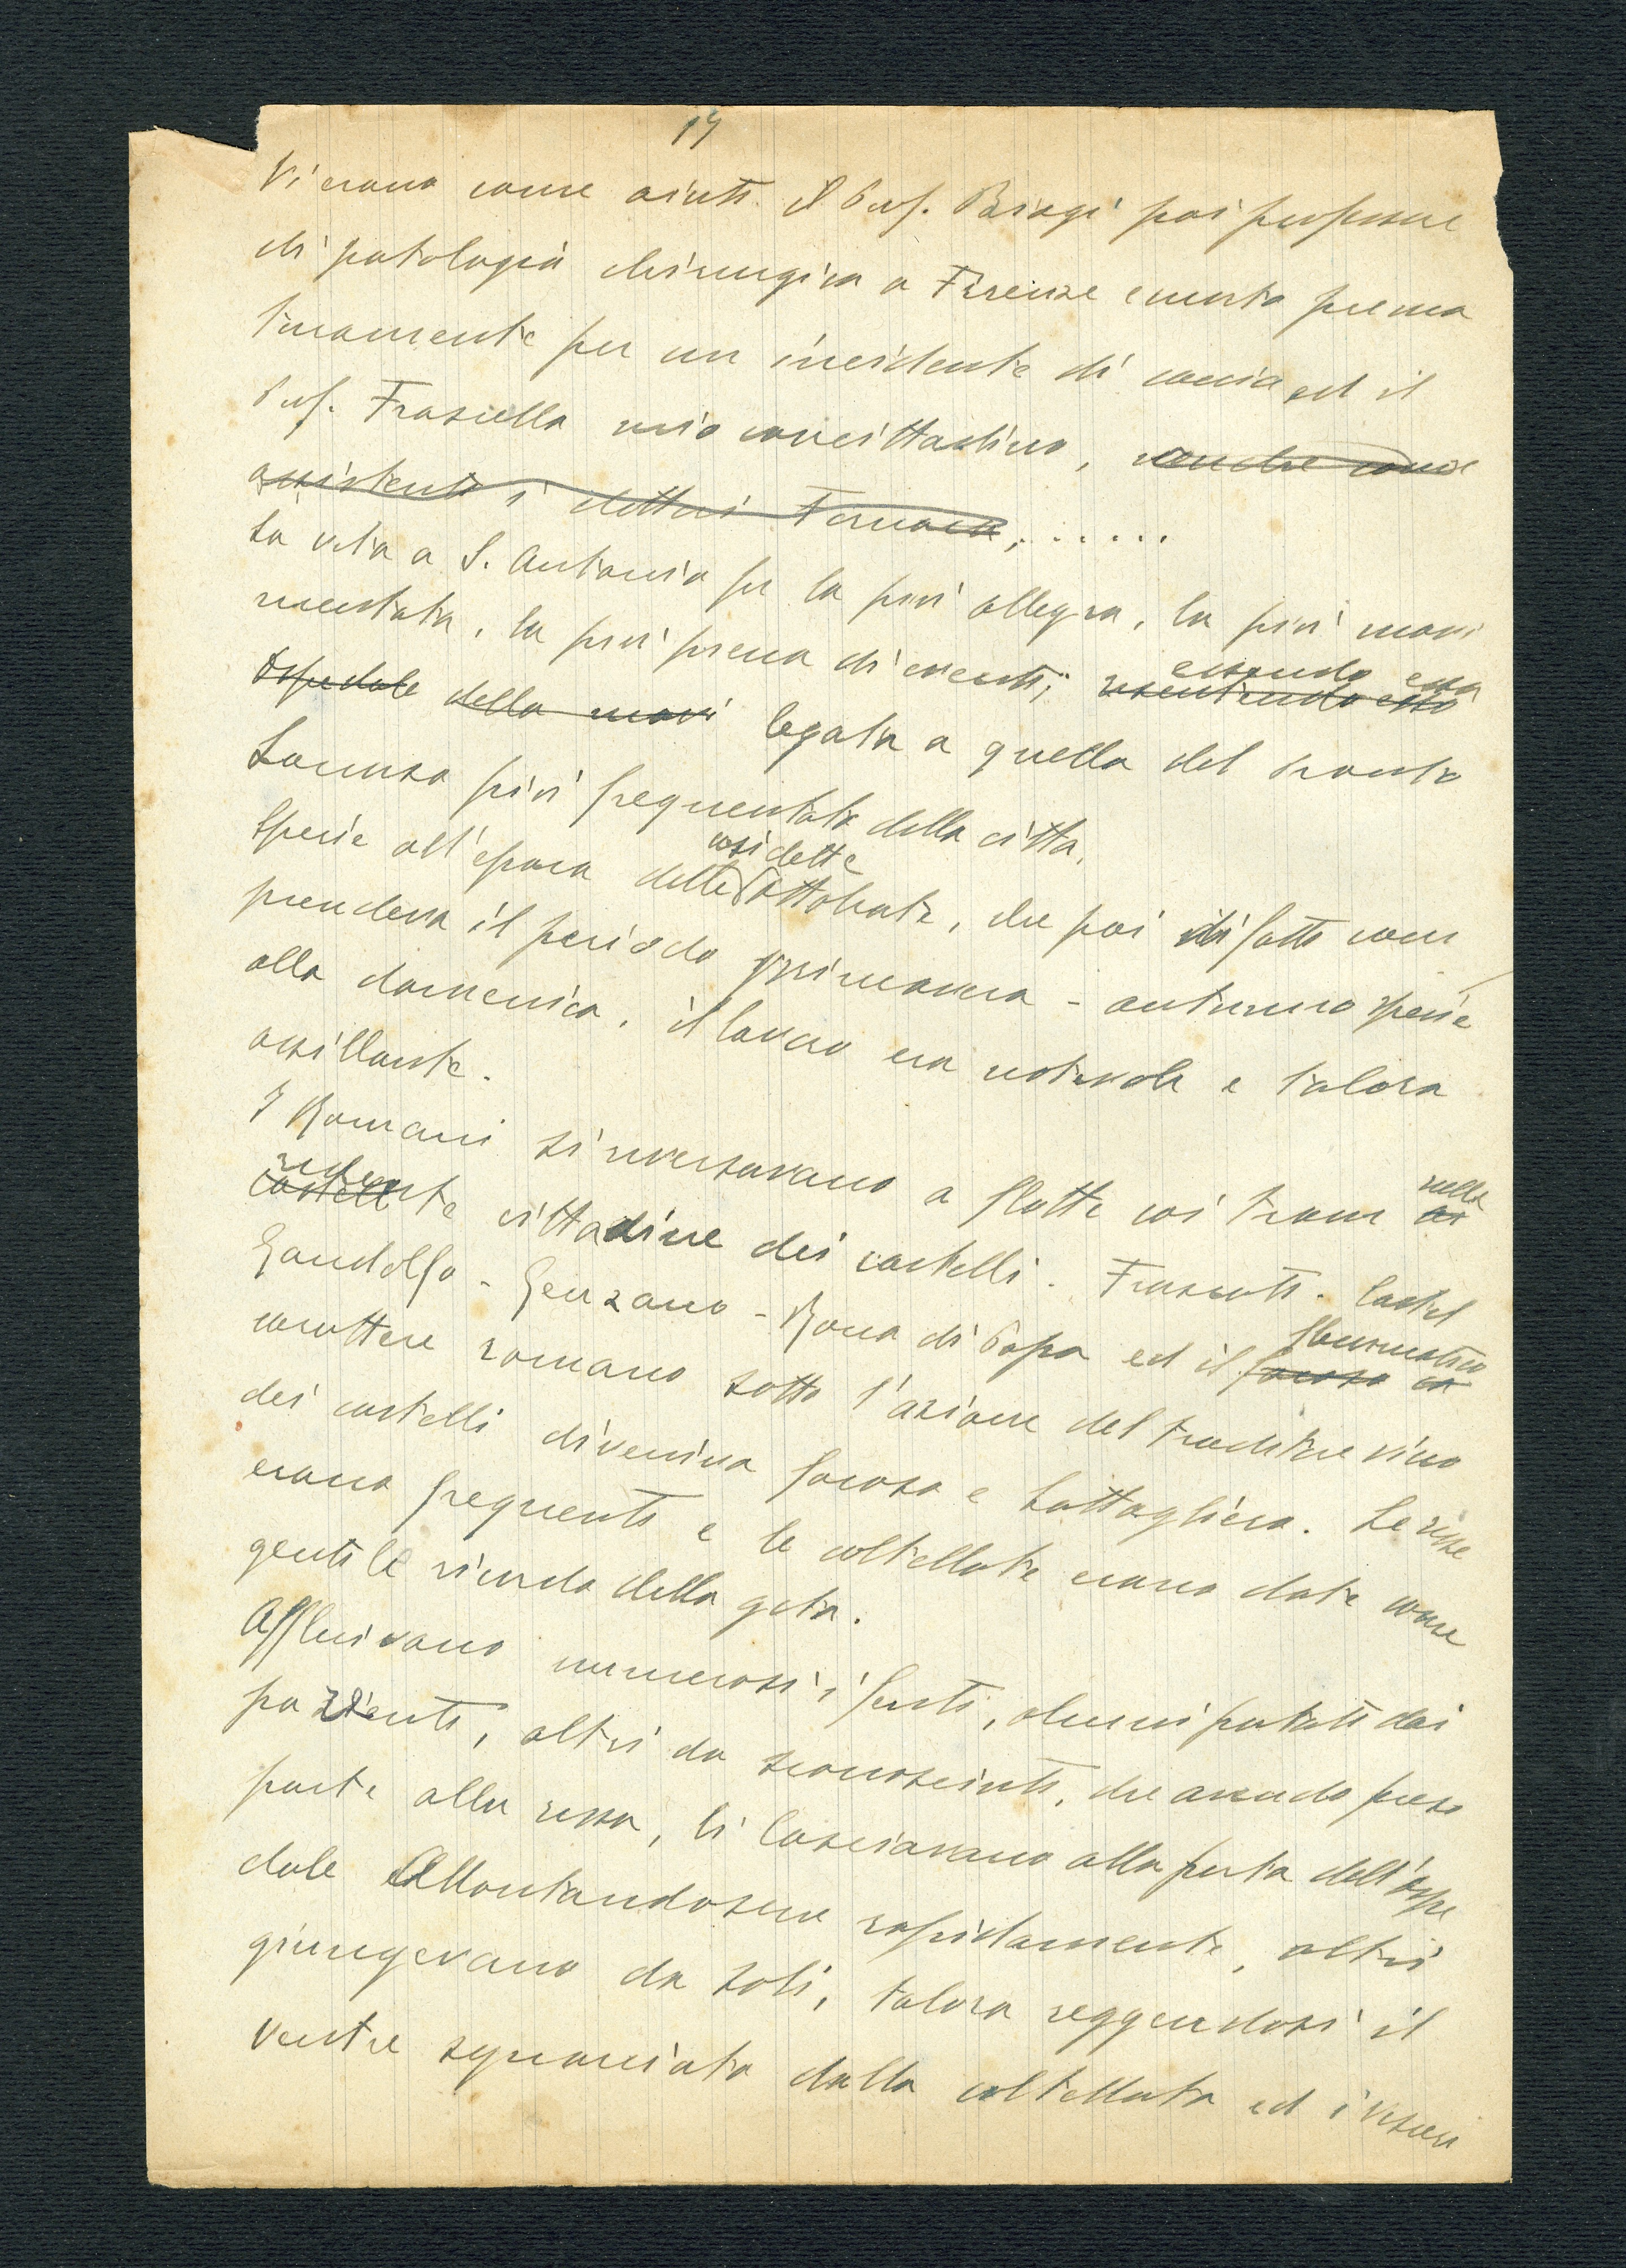 17
Vi erano come aiuti il Prof. Biagi poi professore
di patologia chirurgica a Firenze e morto prema
turamente per un incidente di caccia ed il
Prof. Frasiella mio concittadino, nonchè come
assistenti i dottori Fornaca, . . . . . .
La vita a S. Antonio fu la più allegra, la più movi
mentata, la più piena di eventi, essendo essa
Ospedale della movi legata a quella del pronto
Soccorso più frequentato della città.
Specie all'epoca delle cosidette ottobrate, che poi di fatto com
prendeva il periodo primavera - autunno specie
alla domenica, il lavoro era notevole e talora
assillante.
I Romani si riversavano a flotte coi tram nelle ai
ridente castelli cittadine dei castelli. Frascati. Castel
Gandolfo - Genzano - Rocca di Papa ed il flemmatico focoso ca
carattere romano sotto l'azione del traditore vino
dei castelli diveniva focoso e battagliero. Le risse
erano frequenti e le coltellate erano date come
gentile ricordo della gita.
Affluivano numerosi i feriti, alcuni portati dai
pazienti, altri da sconosciuti, che avendo preso
parte alla rissa, li lasciavano alla porta dell'ospe
dale allontandosene rapidamente, altri
giungevano da soli, talora reggendosi il
ventre squarciato dalla coltellata ed i visceri